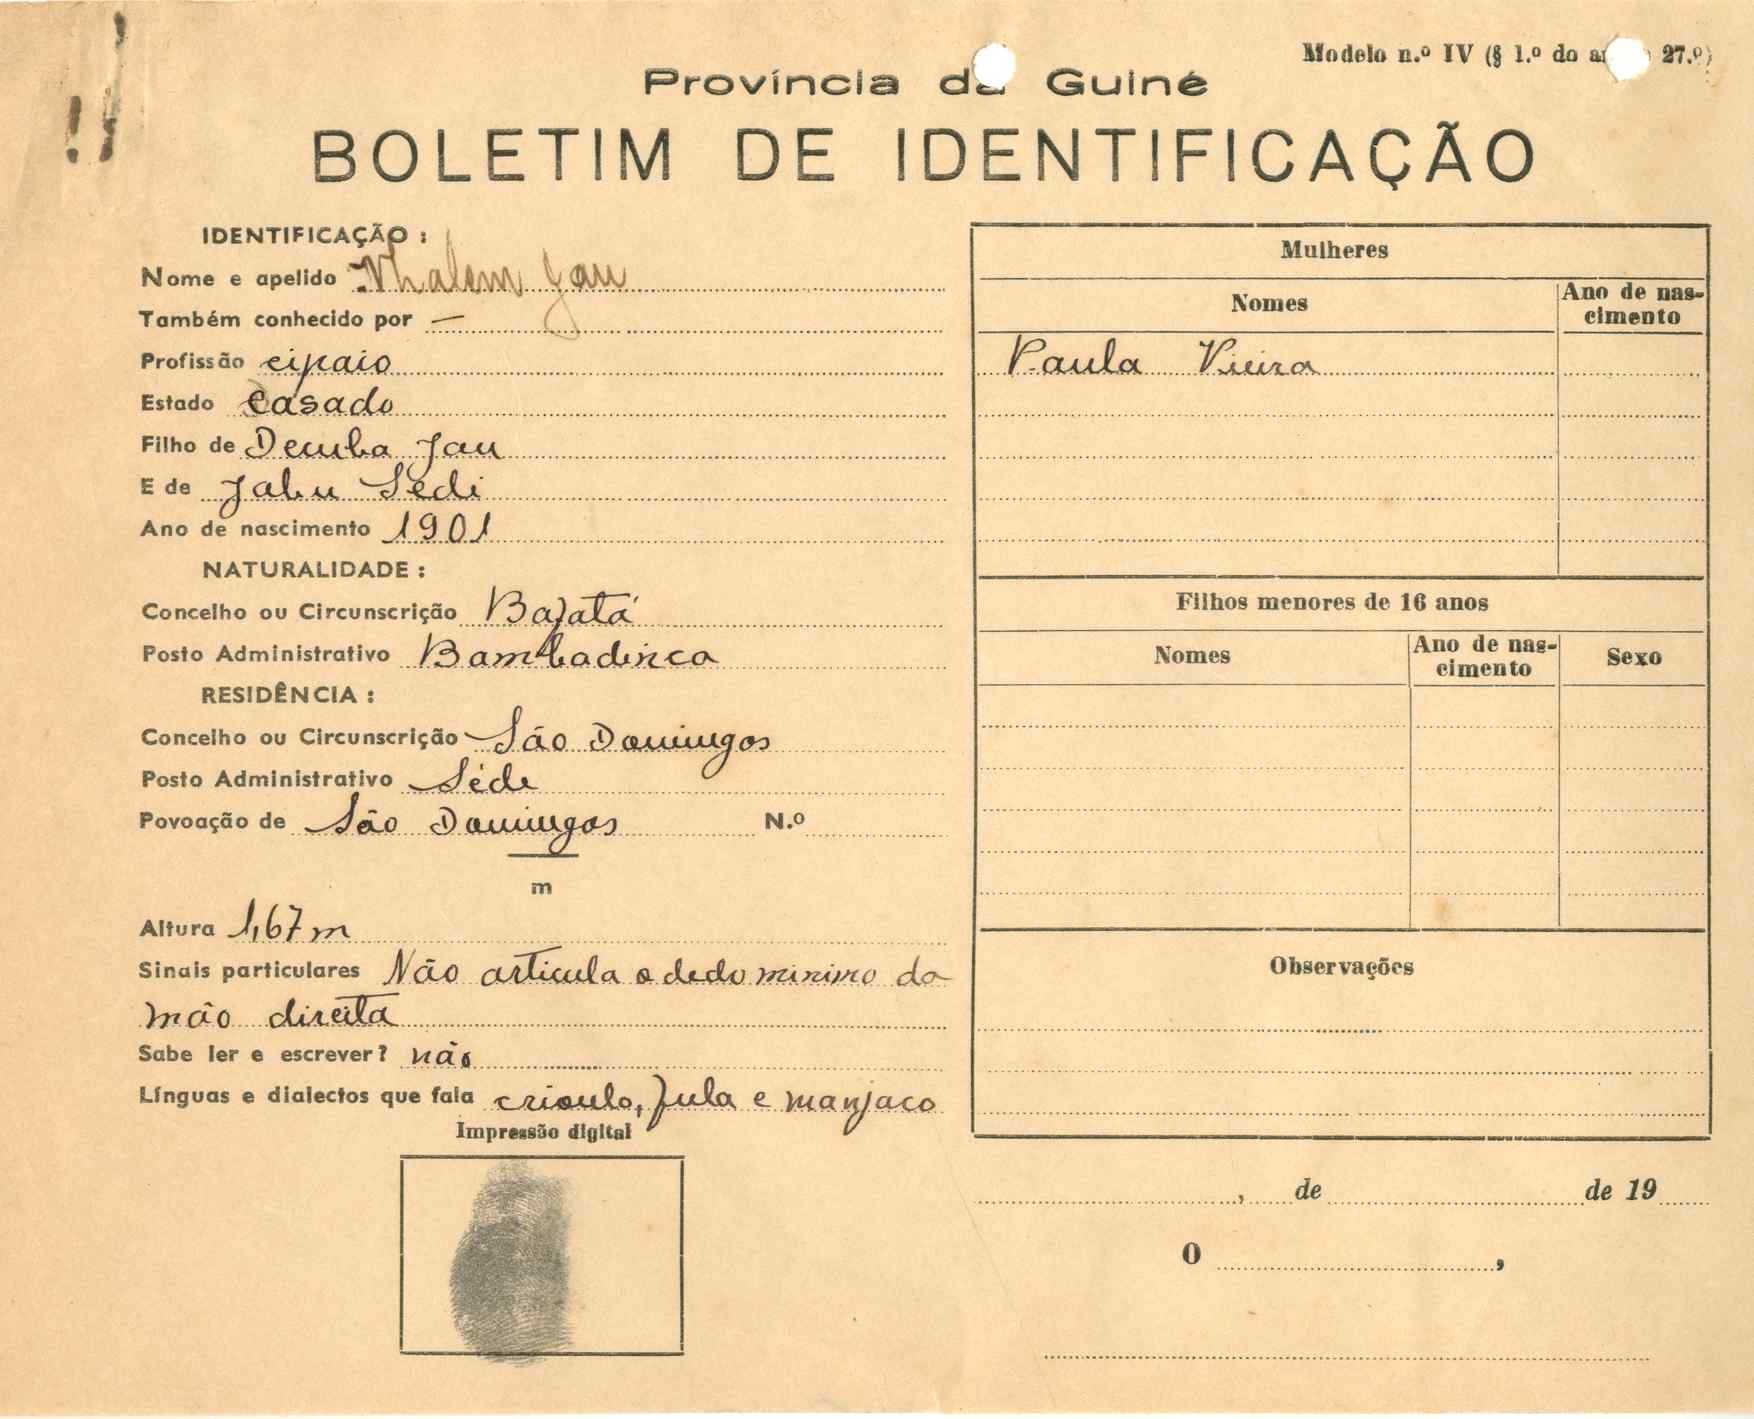 Modelo n.º IV (§ 1.º do 27.º)
Província da Guiné
BOLETIM DE IDENTIFICAÇÃO
IDENTIFICAÇÃO :
Nome e apelido Nhalem Jau
Também conhecido por —
Profissão cipaio
Estado Casado
Filho de Demba Jau
E de Jabu Sedi
Ano de nascimento 1901
NATURALIDADE :
Concelho ou Circunscrição Bafatá
Posto Administrativo Bambadinca
RESIDÊNCIA :
Concelho ou Circunscrição São Domingos
Posto Administrativo Séde
Povoação de São Domingos N.º
m
Altura 1,67 m
Sinais particulares Não articula o dedo minimo da
mão direita
Sabe ler e escrever? não
Línguas e dialectos que fala crioulo, fula e manjaco
Impressão digital
Mulheres
Nomes
Ano de nas-
cimento
Paula Vieira
Filhos menores de 16 anos
Nomes
Ano de nas-
cimento
Sexo
Observações
, de de 19
O ,